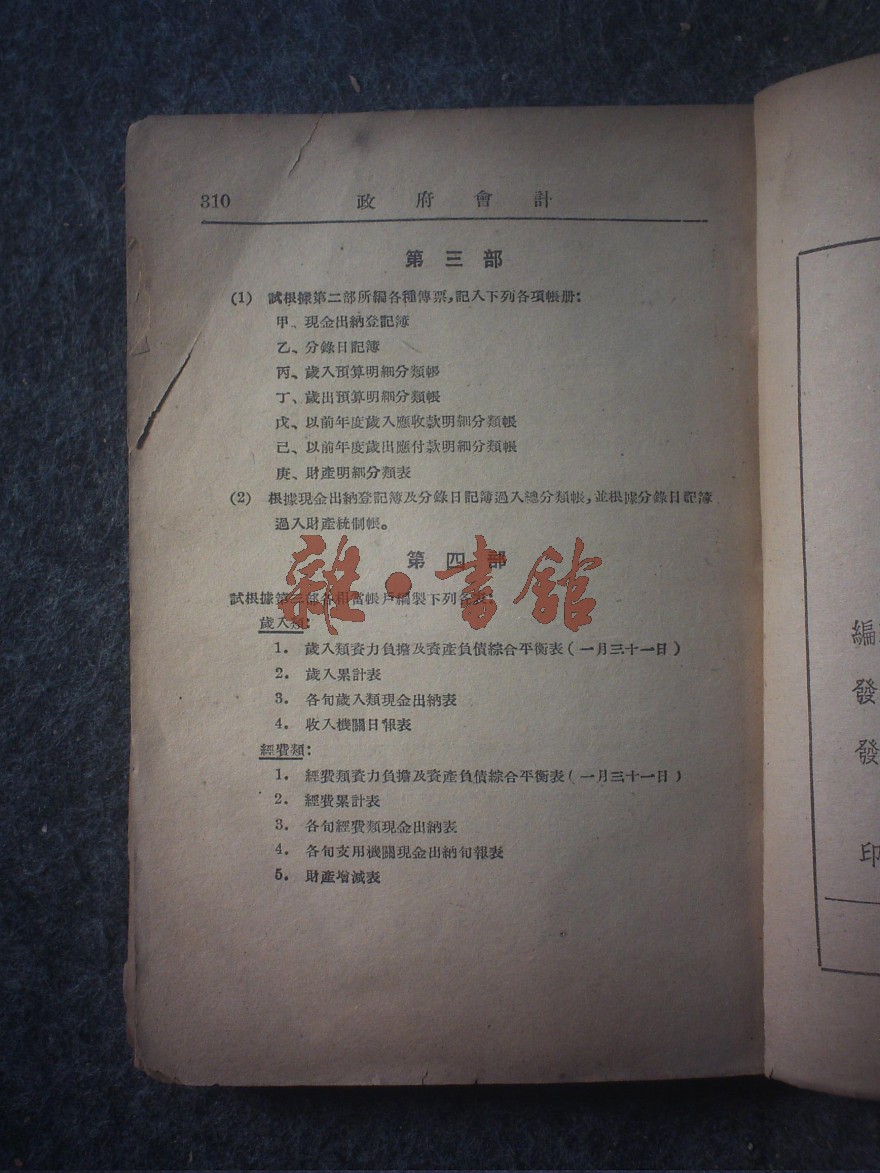 310 政府會計
第三部
(1) 試根據第二部所編各種傳票,記入下列各項帳册:
甲、現金出納登記簿
乙、分錄日記簿
丙、歲入預算明細分類帳
丁、歲出預算明細分類帳
戊、以前年度歲入應收款明細分類帳
己、以前年度歲出應付款明細分類帳
庚、財產明細分類表
(2) 根據現金出納登記簿及分錄日記簿過入總分類帳,並根據分錄日記簿
過入財產統制帳。
第四部
雜·書館
試根據第三部各相當帳戶編製下列各表:
歲入類:
1. 歲入類資力負擔及資產負債綜合平衡表(一月三十一日)
2. 歲入累計表
3. 各旬歲入類現金出納表
4. 收入機關日報表
經費類:
1. 經費類資力負擔及資產負債綜合平衡表(一月三十一日)
2. 經費累計表
3. 各旬經費類現金出納表
4. 各旬支用機關現金出納旬報表
5. 財產增減表
編
發
發
印